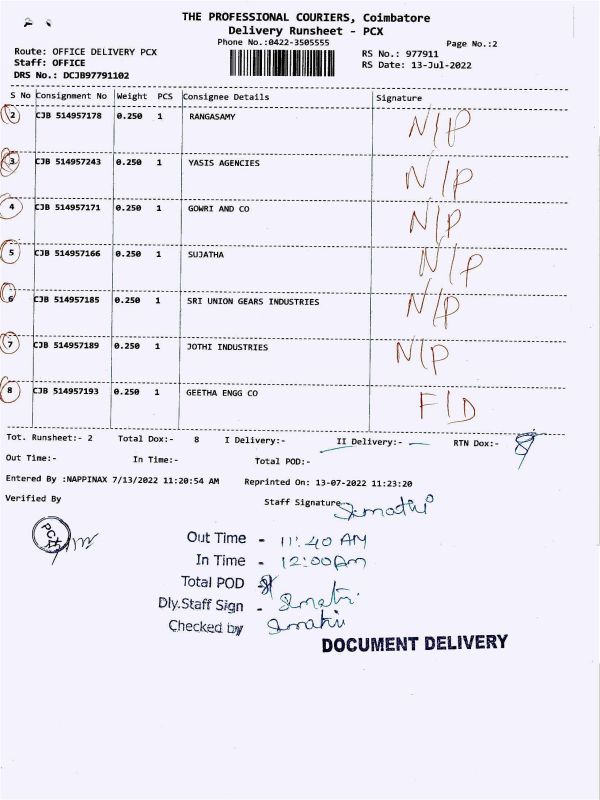 THE PROFESSIONAL COURIERS, Coimbatore
Delivery Runsheet - PCX
Phone No.:0422-3505555
Page No.:2
Route: OFFICE DELIVERY PCX
RS No.: 977911
Staff: OFFICE
RS Date: 13-Jul-2022
DRS No.: DCJB97791102
S No Consignment No Weight PCS Consignee Details Signature
2 CJB 514957178 0.250 1 RANGASAMY N/P
3 CJB 514957243 0.250 1 YASIS AGENCIES N/P
4 CJB 514957171 0.250 1 GOWRI AND CO N/P
5 CJB 514957166 0.250 1 SUJATHA N/P
6 CJB 514957185 0.250 1 SRI UNION GEARS INDUSTRIES N/P
7 CJB 514957189 0.250 1 JOTHI INDUSTRIES N/P
8 CJB 514957193 0.250 1 GEETHA ENGG CO F/D
Tot. Runsheet:- 2 Total Dox:- 8 I Delivery:- II Delivery:- RTN Dox:- 8
Out Time:- In Time:- Total POD:-
Entered By :NAPPINAX 7/13/2022 11:20:54 AM Reprinted On: 13-07-2022 11:23:20
Verified By Staff Signature
PCX
Out Time - 11:40 AM
In Time - 12:00 pm
Total POD -
Dly.Staff Sign -
Checked by
DOCUMENT DELIVERY